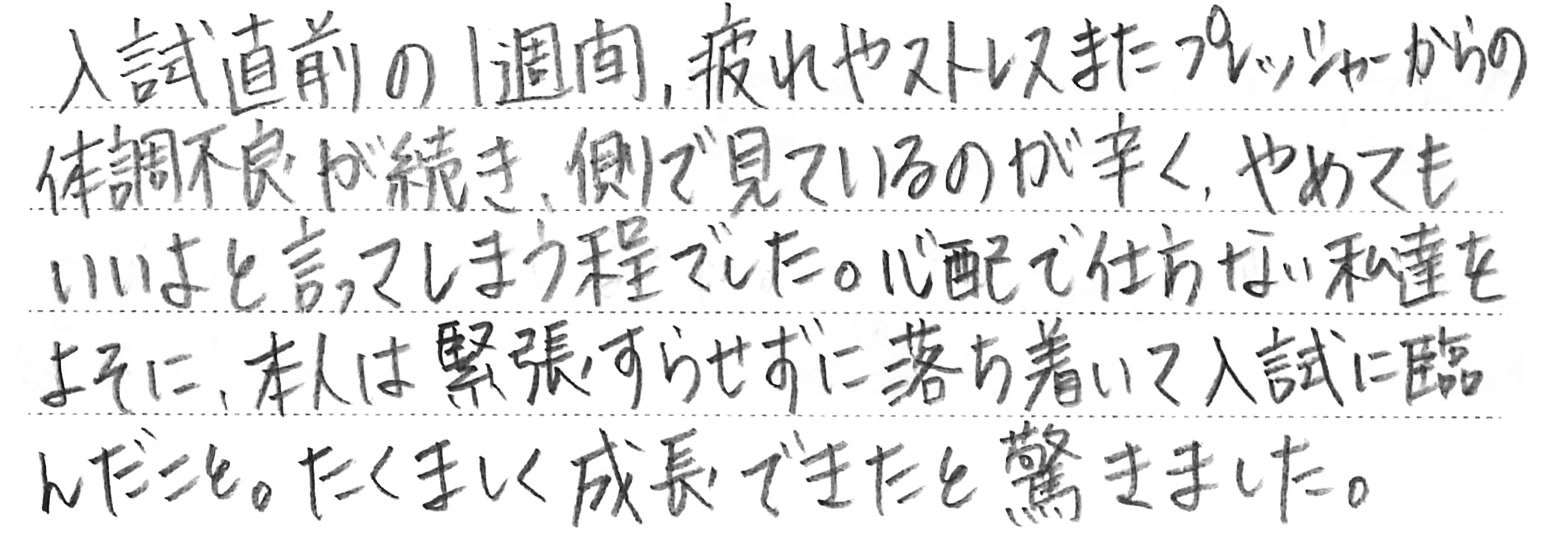 入試直前の1週間、疲れやストレスまたプレッシャーからの
体調不良が続き、側で見ているのが辛く、やめても
いいよと言ってしまう程でした。心配で仕方ない私達を
よそに、本人は緊張すらせずに落ち着いて入試に臨
んだこと。たくましく成長できたと驚きました。